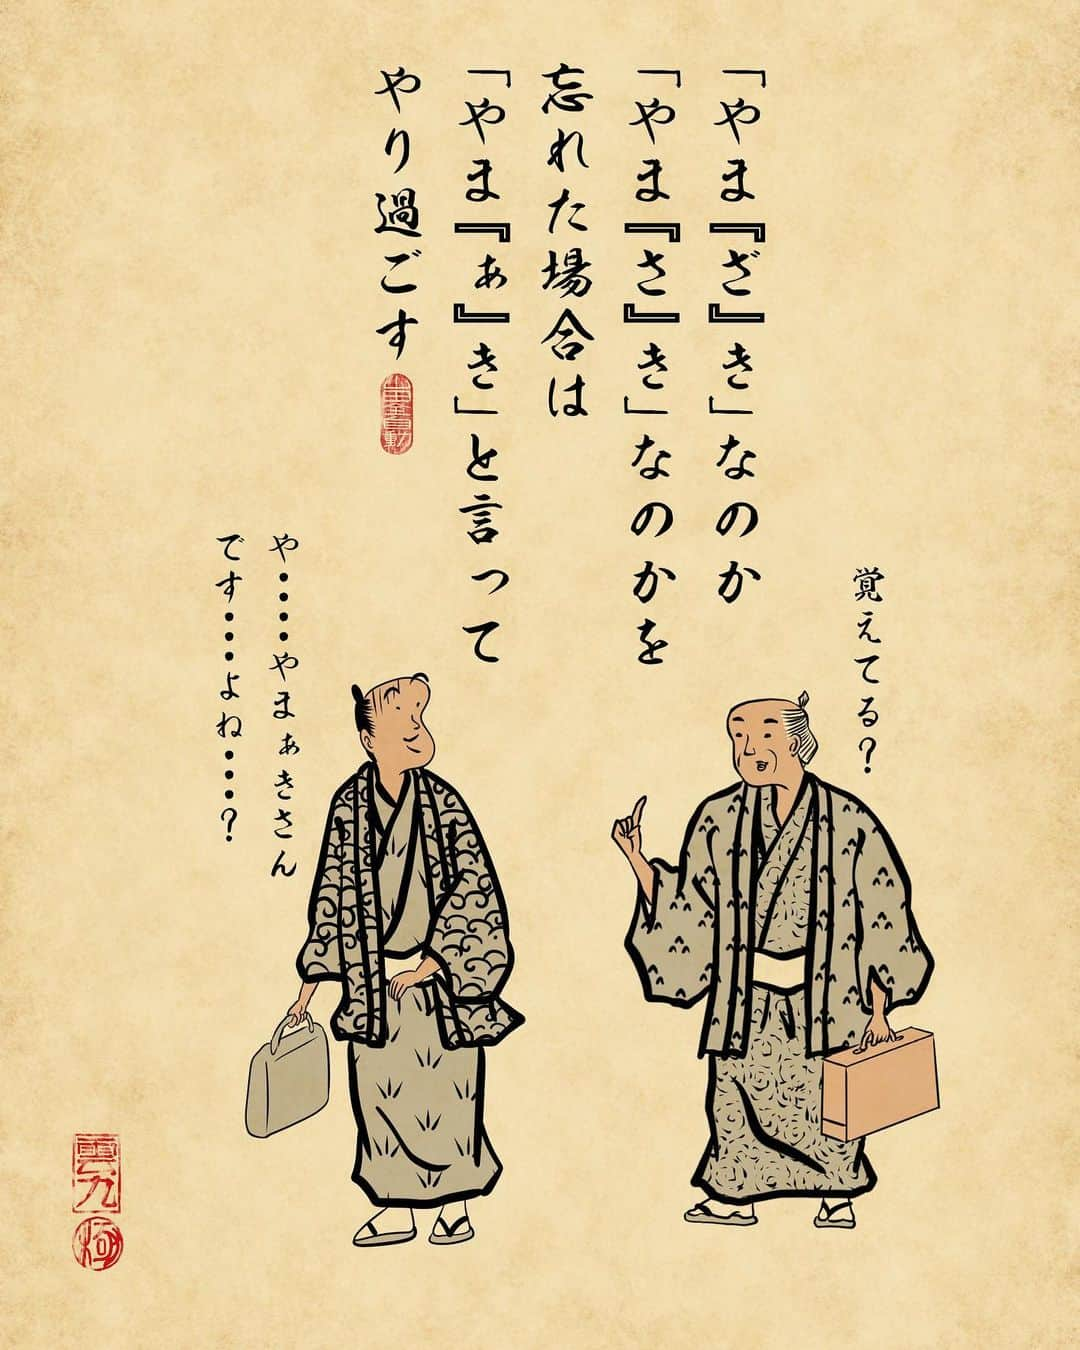 「やま『ざ』き」なのか
「やま『さ』き」なのかを
忘れた場合は
「やま『ぁ』き」と言って
やり過ごす
覚えてる？
や・・・・やまぁきさん
です・・・よね・・・？